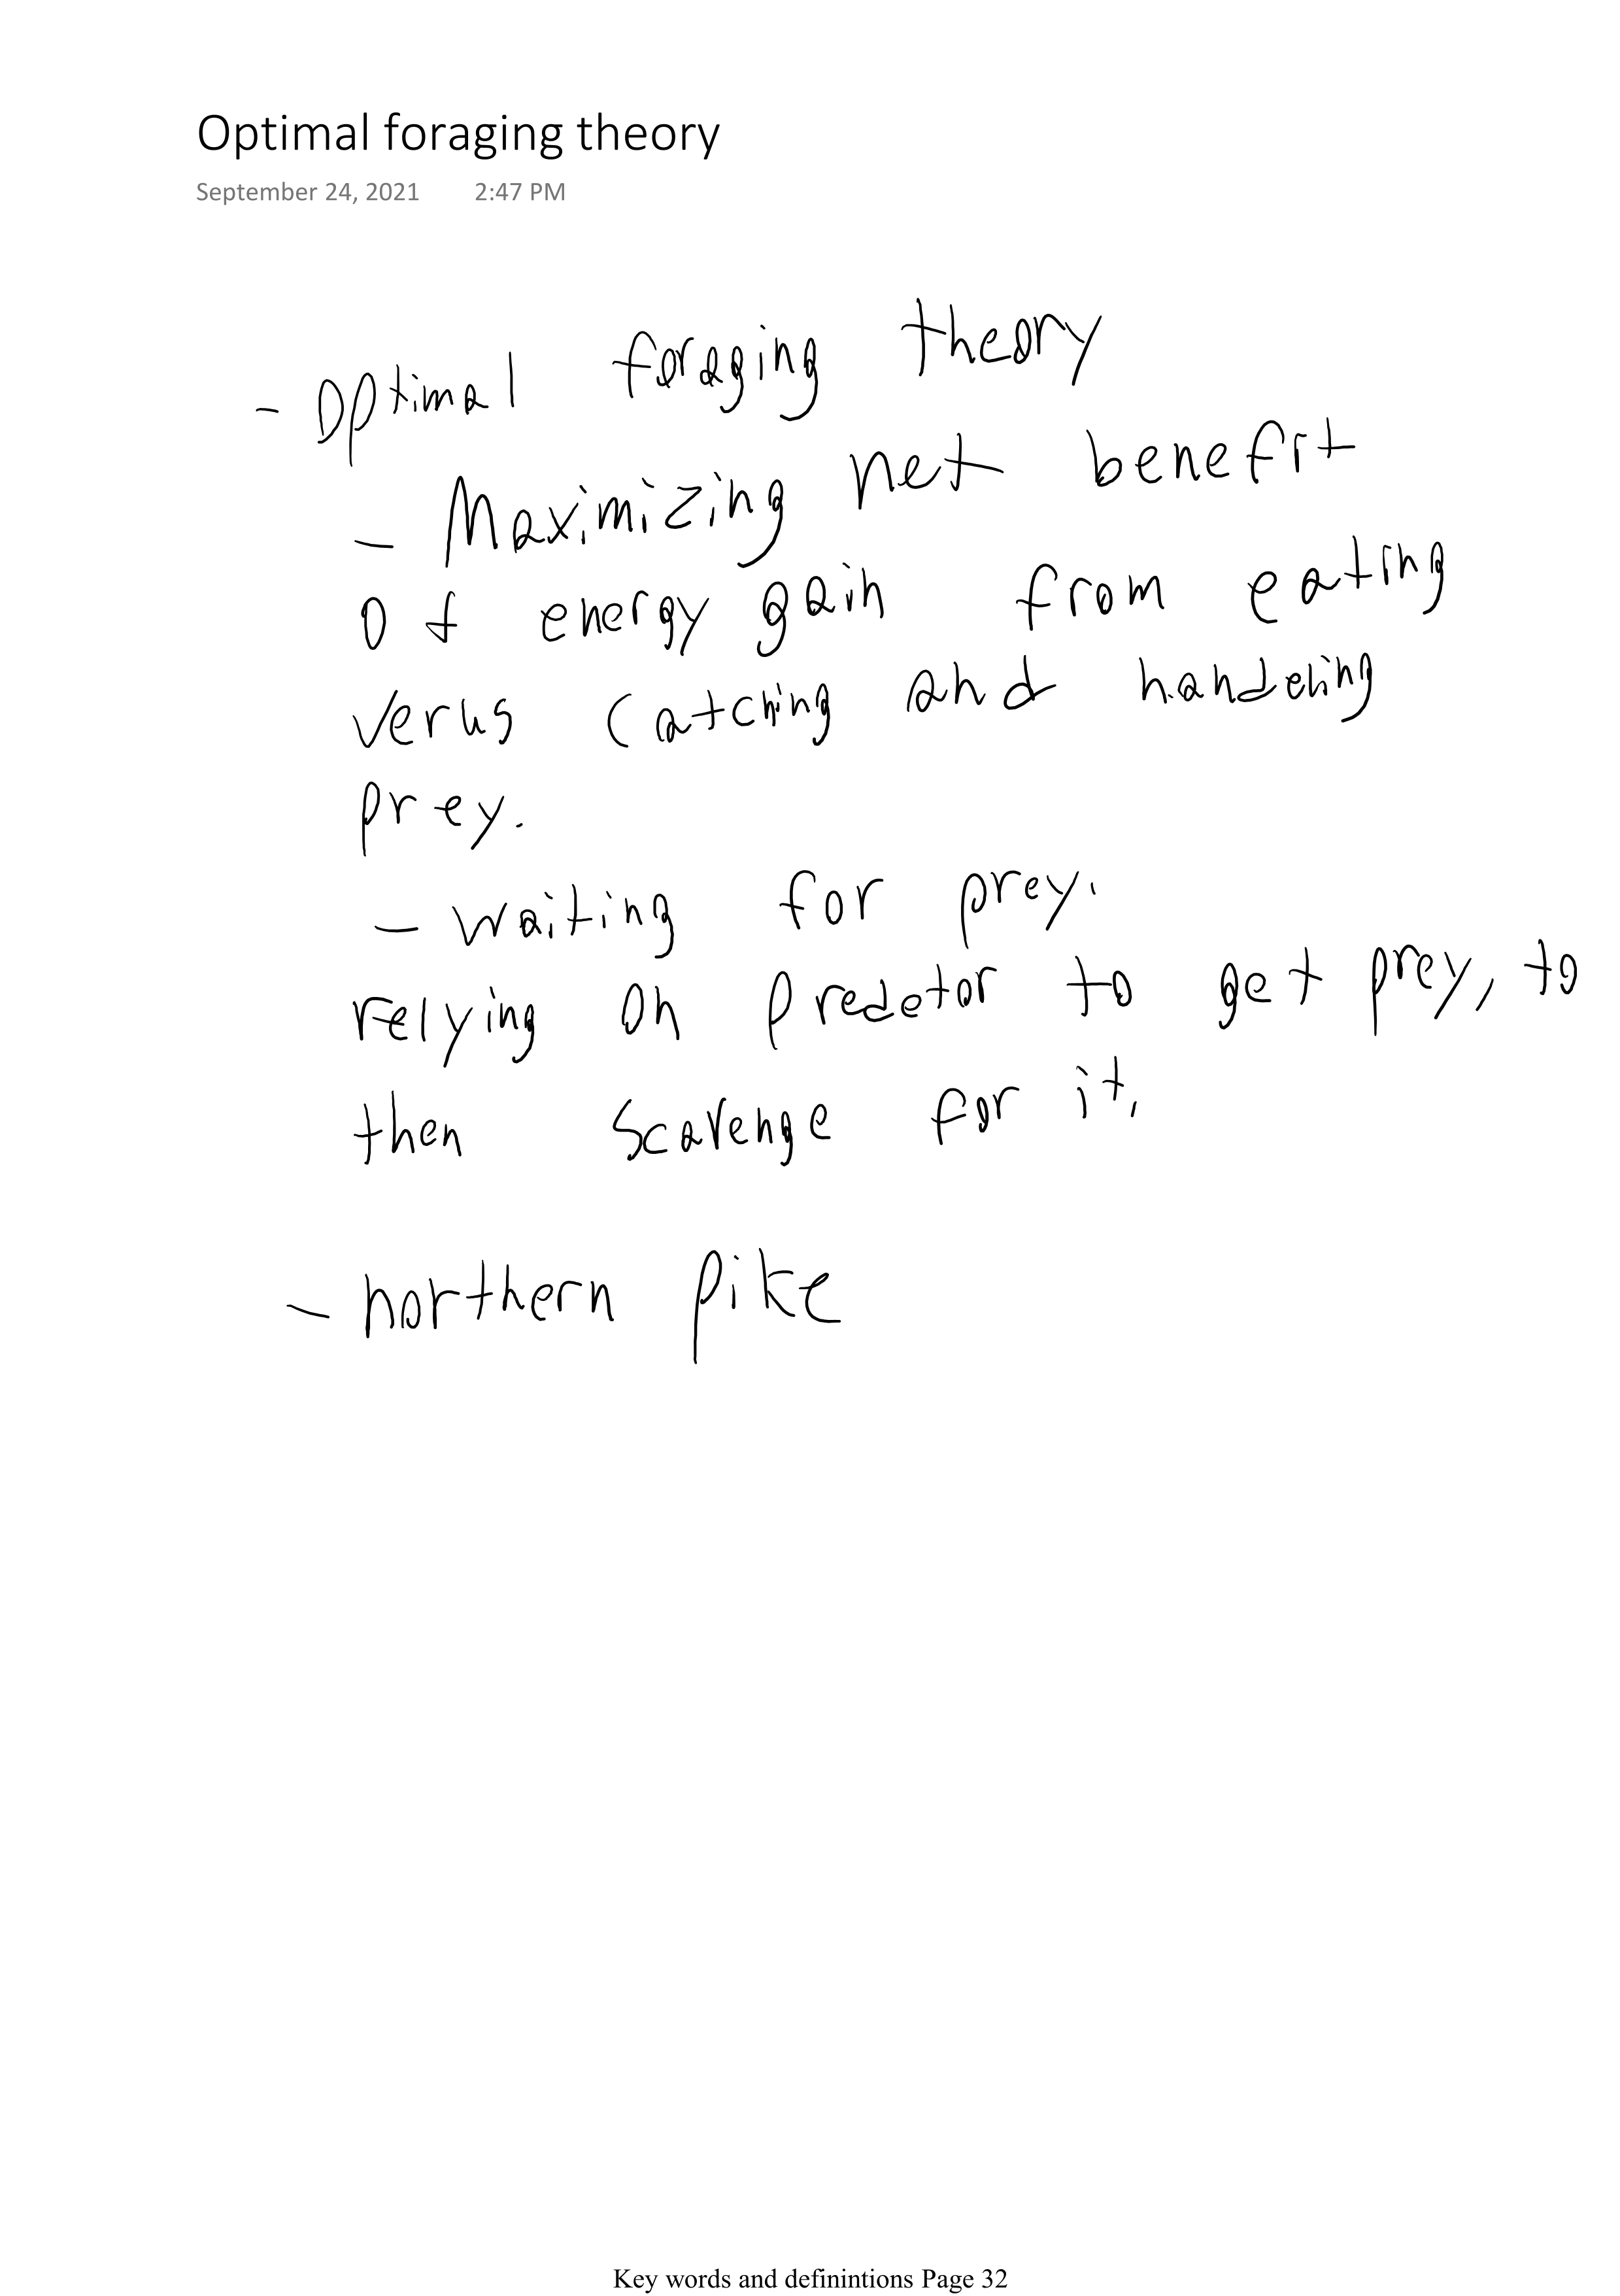 Optimal foraging theory
September 24, 2021 2:47 PM
- Optimal foraging theory
- Maximizing net benefit
of energy gain from eating
verus catching and handeling
prey.
- waiting for prey.
relying on predetor to get prey, to
then scavenge for it.
- northern pike
Key words and definintions Page 32